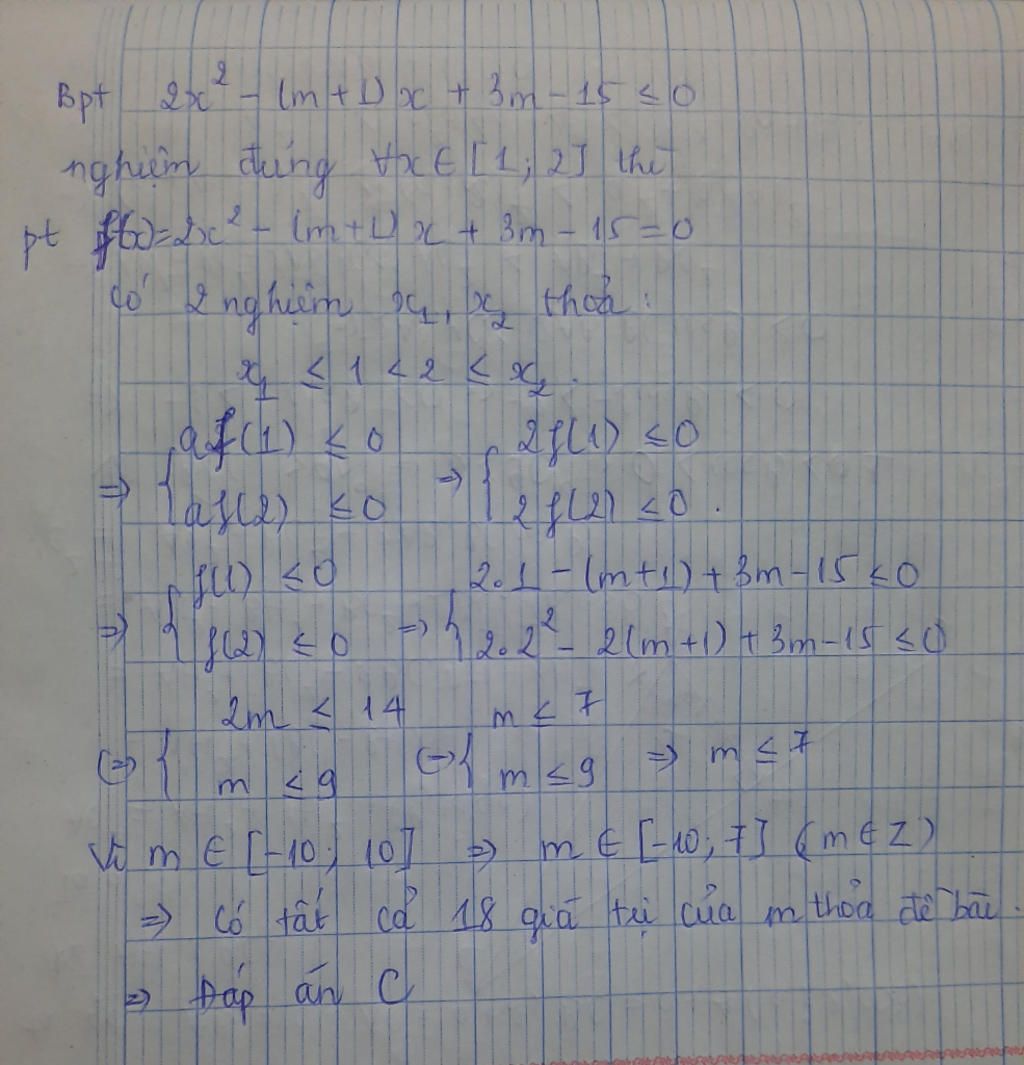 Bpt 2x² - (m + 1)x + 3m - 15 ≤ 0
nghiệm đúng ∀x ∈ [1; 2] thì
pt f(x) = 2x² - (m + 1)x + 3m - 15 = 0
có 2 nghiệm x₁, x₂ thoả:
x₁ ≤ 1 < 2 ≤ x₂.
⇒ { af(1) ≤ 0 ; af(2) ≤ 0 ⇒ { 2f(1) ≤ 0 ; 2f(2) ≤ 0.
⇒ { f(1) ≤ 0 ; f(2) ≤ 0 ⇒ { 2.1 - (m+1) + 3m - 15 ≤ 0 ; 2.2² - 2(m+1) + 3m - 15 ≤ 0
⇔ { 2m ≤ 14 ; m ≤ 9 ⇔ { m ≤ 7 ; m ≤ 9 ⇒ m ≤ 7
Vì m ∈ [-10; 10] ⇒ m ∈ [-10; 7] (m ∈ Z)
⇒ Có tất cả 18 giá trị của m thoả đề bài.
⇒ Đáp án C